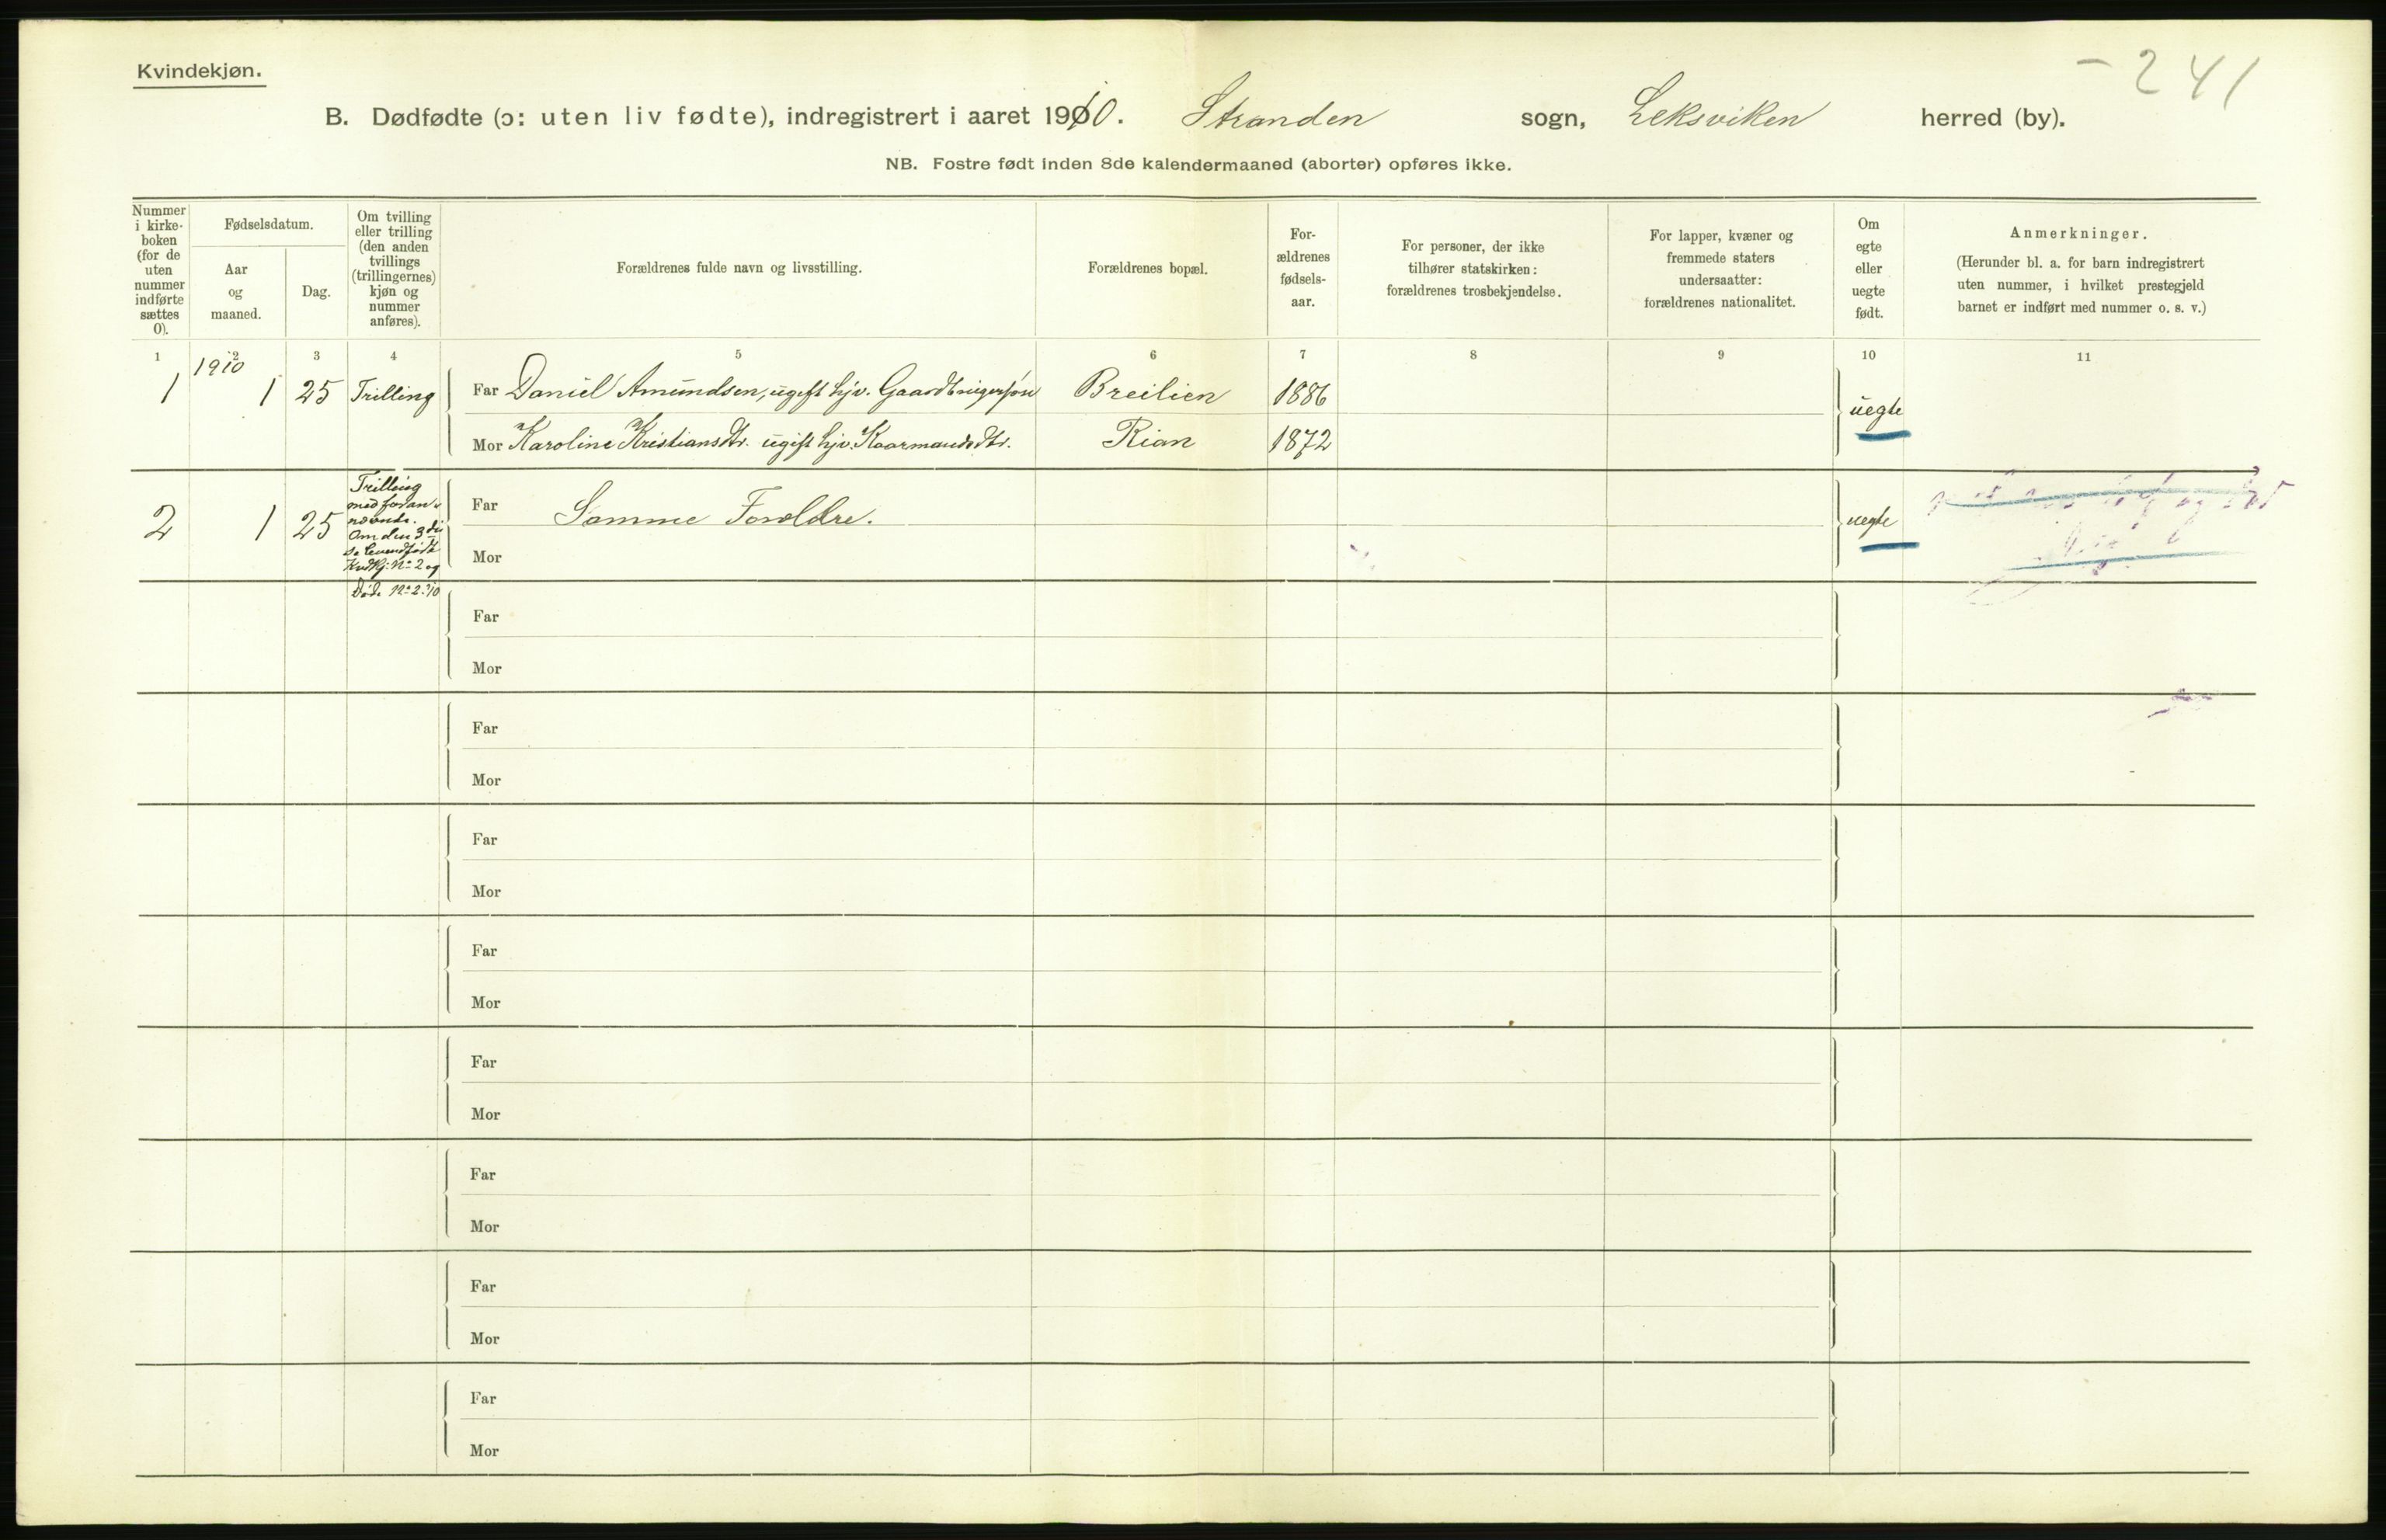 Kvindekjøn.
- 241
B. Dødfødte (ɔ: uten liv fødte), indregistrert i aaret 1910. Stranden sogn, Leksviken herred (by).
NB. Fostre født inden 8de kalendermaaned (aborter) opføres ikke.
Nummer i kirke-boken (for de uten nummer indførte sættes 0).
Fødselsdatum.
Aar og maaned.
Dag.
Om tvilling eller trilling (den anden tvillings (trillingernes) kjøn og nummer anføres).
Forældrenes fulde navn og livsstilling.
Forældrenes bopæl.
For-ældrenes fødsels-aar.
For personer, der ikke tilhører statskirken: forældrenes trosbekjendelse.
For lapper, kvæner og fremmede staters undersaatter: forældrenes nationalitet.
Om egte eller uegte født.
Anmerkninger.
(Herunder bl. a. for barn indregistrert uten nummer, i hvilket prestegjeld barnet er indført med nummer o. s. v.)
1 2 3 4 5 6 7 8 9 10 11
1910
1 1 25 Trilling Far Daniel Amundsen, ugift hjv. Gaardbrugersøn Breilien 1886 uegte
Mor Karoline Kristiansdtr. ugift hjv. Kaarmandsdtr. Rian 1872
2 1 25 Trilling med foran nævnte. Om den 3die se levendefødte Kvdkj: No 2 og Døde No 2: 10 Far Samme Forældre. uegte
Mor
Far
Mor
Far
Mor
Far
Mor
Far
Mor
Far
Mor
Far
Mor
Far
Mor
Far
Mor